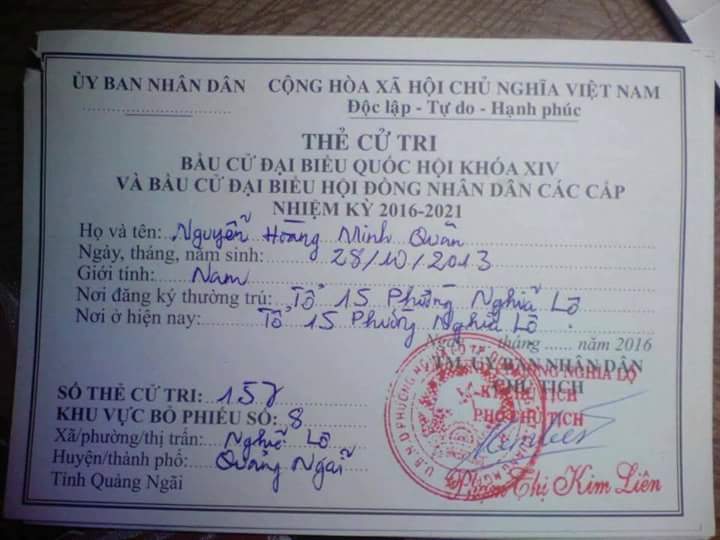 ỦY BAN NHÂN DÂN
CỘNG HÒA XÃ HỘI CHỦ NGHĨA VIỆT NAM
Độc lập - Tự do - Hạnh phúc
THẺ CỬ TRI
BẦU CỬ ĐẠI BIỂU QUỐC HỘI KHÓA XIV
VÀ BẦU CỬ ĐẠI BIỂU HỘI ĐỒNG NHÂN DÂN CÁC CẤP
NHIỆM KỲ 2016-2021
Họ và tên: Nguyễn Hoàng Minh Quân
Ngày, tháng, năm sinh: 28/10/2013
Giới tính: Nam
Nơi đăng ký thường trú: Tổ 15 Phường Nghĩa Lộ
Nơi ở hiện nay: Tổ 15 Phường Nghĩa Lộ
Ngày tháng ...... năm 2016
TM. ỦY BAN NHÂN DÂN
CHỦ TỊCH
PHƯỜNG NGHĨA LỘ
KT. CHỦ TỊCH
PHÓ CHỦ TỊCH
SỐ THẺ CỬ TRI: 157
KHU VỰC BỎ PHIẾU SỐ: 8
Xã/phường/thị trấn: Nghĩa Lộ
Huyện/thành phố: Quảng Ngãi
Tỉnh Quảng Ngãi
Phạm Thị Kim Liên